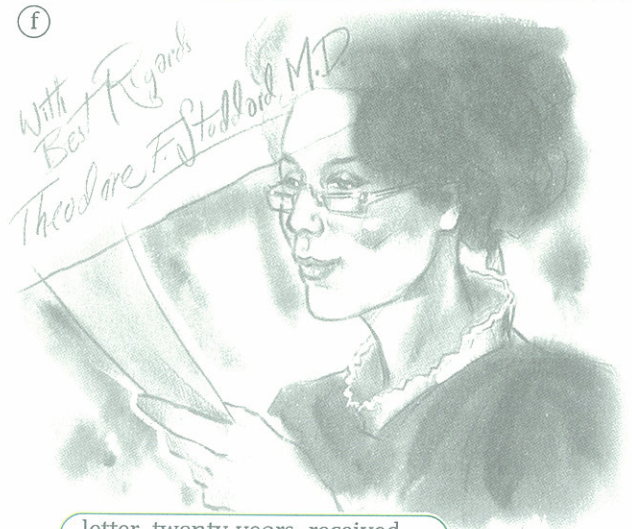 f
With
Best Regards
Theodore F. Stoddard, M.D.
letter, twenty years, received